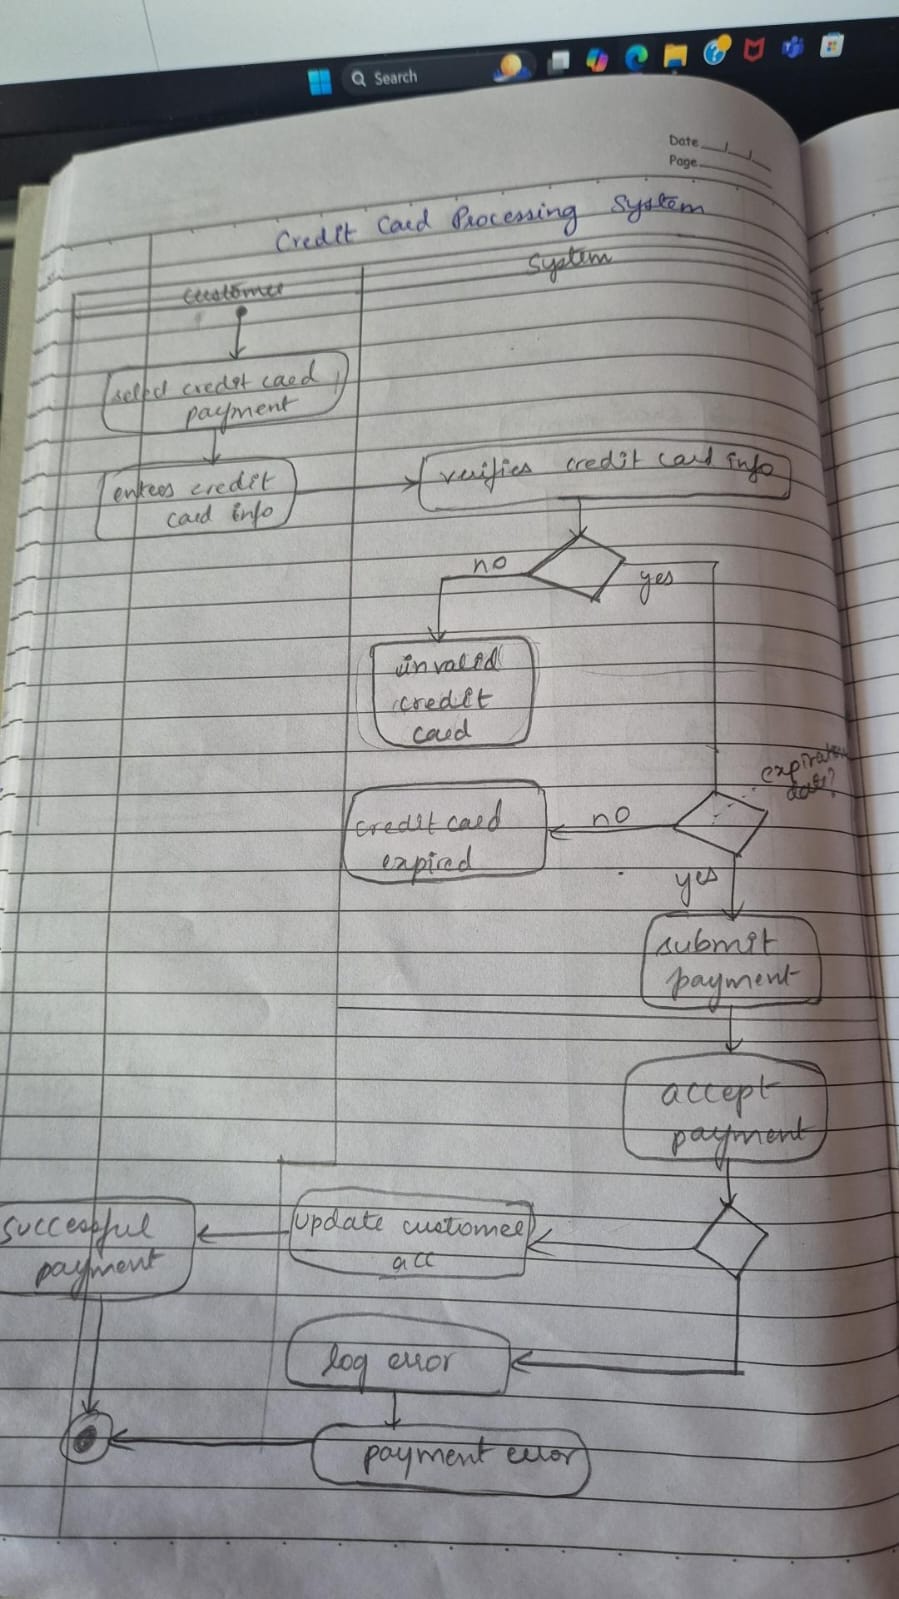 Search
Date
Page
Credit Card Processing System
customer
System
select credit card
payment
enters credit
card info
verifies credit card info
no
yes
invalid
credit
card
expiration
date?
credit card
expired
no
yes
submit
payment
accept
payment
successful
payment
update customer
acc
log error
payment error